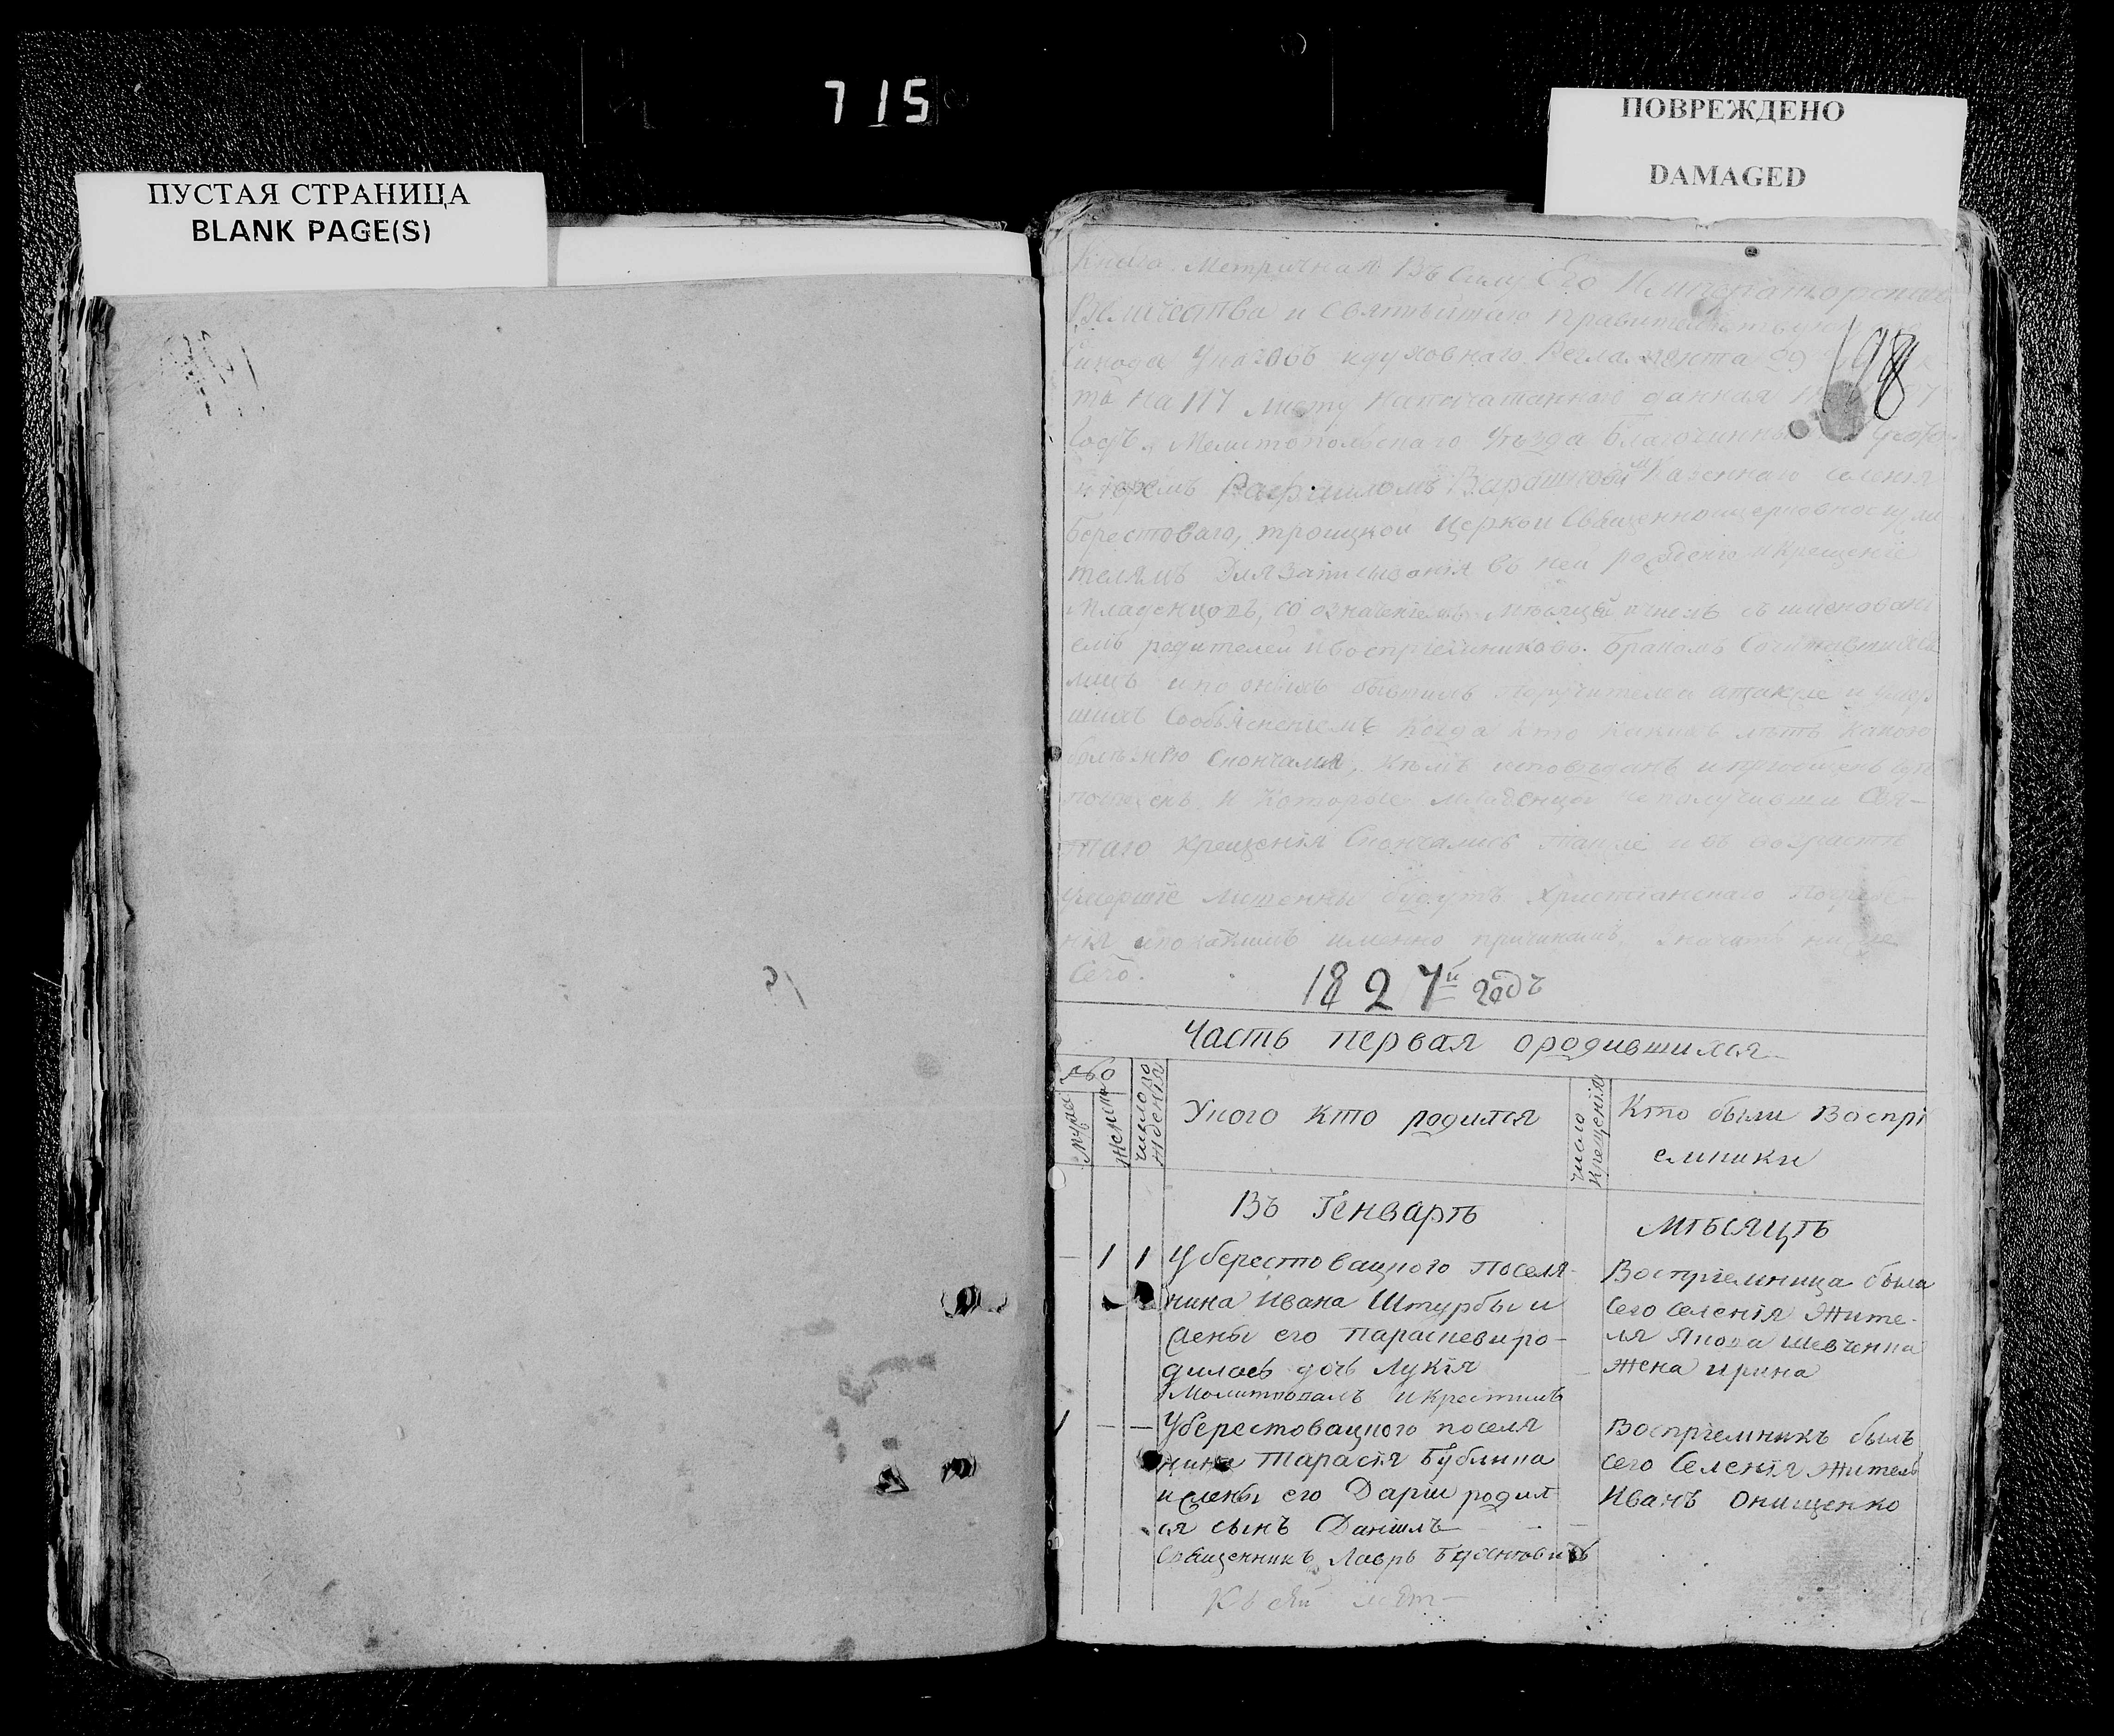 715
ПОВРЕЖДЕНО
DAMAGED
ПУСТАЯ СТРАНИЦА
BLANK PAGE(S)
Книга Метричная Въ Силу Его Императорскаго
Величества и Святѣйшаго Правительствующ
Синода Указовъ и духовнаго Регламента 29
на 117 листу напечатаннаго данная
198
Годъ. Мелитопольскаго Уѣзда Благочинны
Рафаиломъ Казеннаго селенія
Берестоваго, троицкой Церкви Священноцерковнослужи
телямъ Для записыванія въ ней рожденіе и крещеніе
Младенцовъ, со означеніемъ Мѣсяцей и чиселъ съ именовані
емъ родителей и воспріемниковъ. Бракомъ Сочитавшихся
лицъ и по онымъ бывшихъ Поручителей а также и умер
шихъ Со объясненіемъ Когда Кто Какихъ лѣтъ Какою
болѣзнію Скончался, Кѣмъ исповѣданъ и пріобщенъ
погребенъ и Которые Младенцы неполучивши Свя-
таго Крещенія Скончались также и въ возрастѣ
умершіе Лишенны будутъ Христіанскаго Погребе-
нія и по какимъ именно причинамъ, значитъ ниже
Сего.
1827й годъ
Часть первая ородившихся
Число рожденія
Укого Кто родился
Число Крещенія
Кто были Воспрі
емники
Въ Генварѣ
Мѣсяцѣ
1 1 Уберестовацкого поселя-
нина Ивана Штурбы и
жены его Параскевиро-
дилась дочь Лукія
Молитвовалъ и Крестилъ
Воспріемница была
сего селенія Жите-
ля Якова Шевченка
Жена Ирина
1 — — Уберестовацкого поселя
нина Тарасія Бублика
ижены его Даріи родил
ся сынъ Даніилъ
Священникъ Лавръ
Воспріемникъ былъ
сего Селенія Житель
Иванъ Онищенко